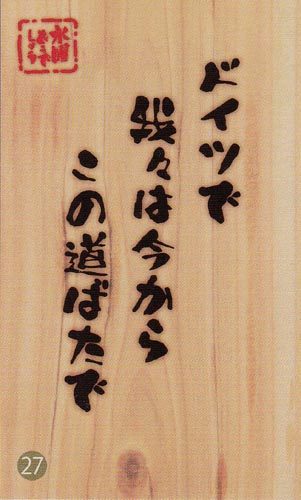 水曜
どうで
しょう
ドイツで
我々は今から
この道ばたで
27